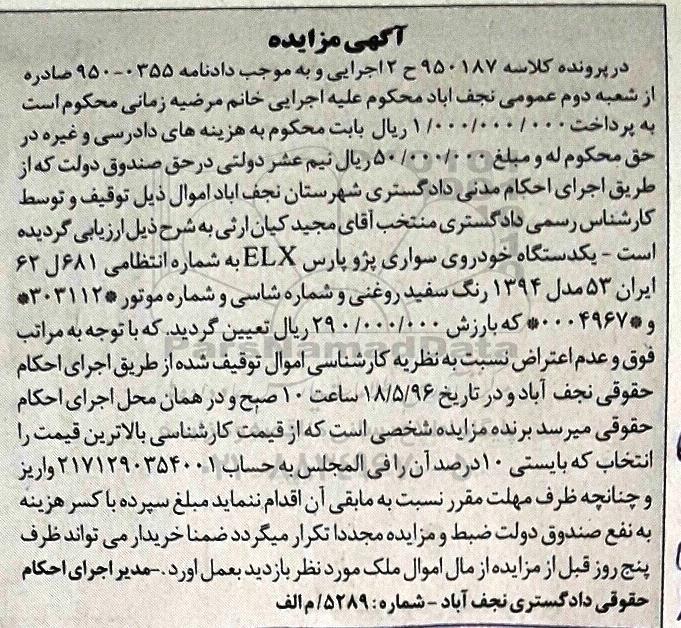 آگهی مزایده
در پرونده کلاسه ۹۵۰۱۸۷ ح ۲ اجرایی و به موجب دادنامه ۰۳۵۵-۹۵۰ صادره
از شعبه دوم عمومی نجف اباد محکوم علیه اجرایی خانم مرضیه زمانی محکوم است
به پرداخت ۱/۰۰۰/۰۰۰/۰۰۰ ریال بابت محکوم به هزینه های دادرسی و غیره در
حق محکوم له و مبلغ ۵۰/۰۰۰/۰۰۰ ریال نیم عشر دولتی درحق صندوق دولت که از
طریق اجرای احکام مدنی دادگستری شهرستان نجف اباد اموال ذیل توقیف و توسط
کارشناس رسمی دادگستری منتخب آقای مجید کیان ارثی به شرح ذیل ارزیابی گردیده
است - یکدستگاه خودروی سواری پژو پارس ELX به شماره انتظامی ۶۸۱ ل ۶۲
ایران ۵۳ مدل ۱۳۹۴ رنگ سفید روغنی و شماره شاسی و شماره موتور *۳۰۳۱۱۲*
و *۰۰۰۴۹۶۷* که بارزش ۲۹۰/۰۰۰/۰۰۰ ریال تعیین گردید. که با توجه به مراتب
فوق و عدم اعتراض نسبت به نظریه کارشناسی اموال توقیف شده از طریق اجرای احکام
حقوقی نجف آباد و در تاریخ ۱۸/۵/۹۶ ساعت ۱۰ صبح و در همان محل اجرای احکام
حقوقی میرسد برنده مزایده شخصی است که از قیمت کارشناسی بالاترین قیمت را
انتخاب که بایستی ۱۰درصد آن را فی المجلس به حساب ۲۱۷۱۲۹۰۳۵۴۰۰۱ واریز
و چنانچه ظرف مهلت مقرر نسبت به مابقی آن اقدام ننماید مبلغ سپرده با کسر هزینه
به نفع صندوق دولت ضبط و مزایده مجددا تکرار میگردد ضمنا خریدار می تواند ظرف
پنج روز قبل از مزایده از مال اموال ملک مورد نظر بازدید بعمل اورد.-مدیر اجرای احکام
حقوقی دادگستری نجف آباد - شماره: ۵۲۸۹/م الف
ParsNamadData